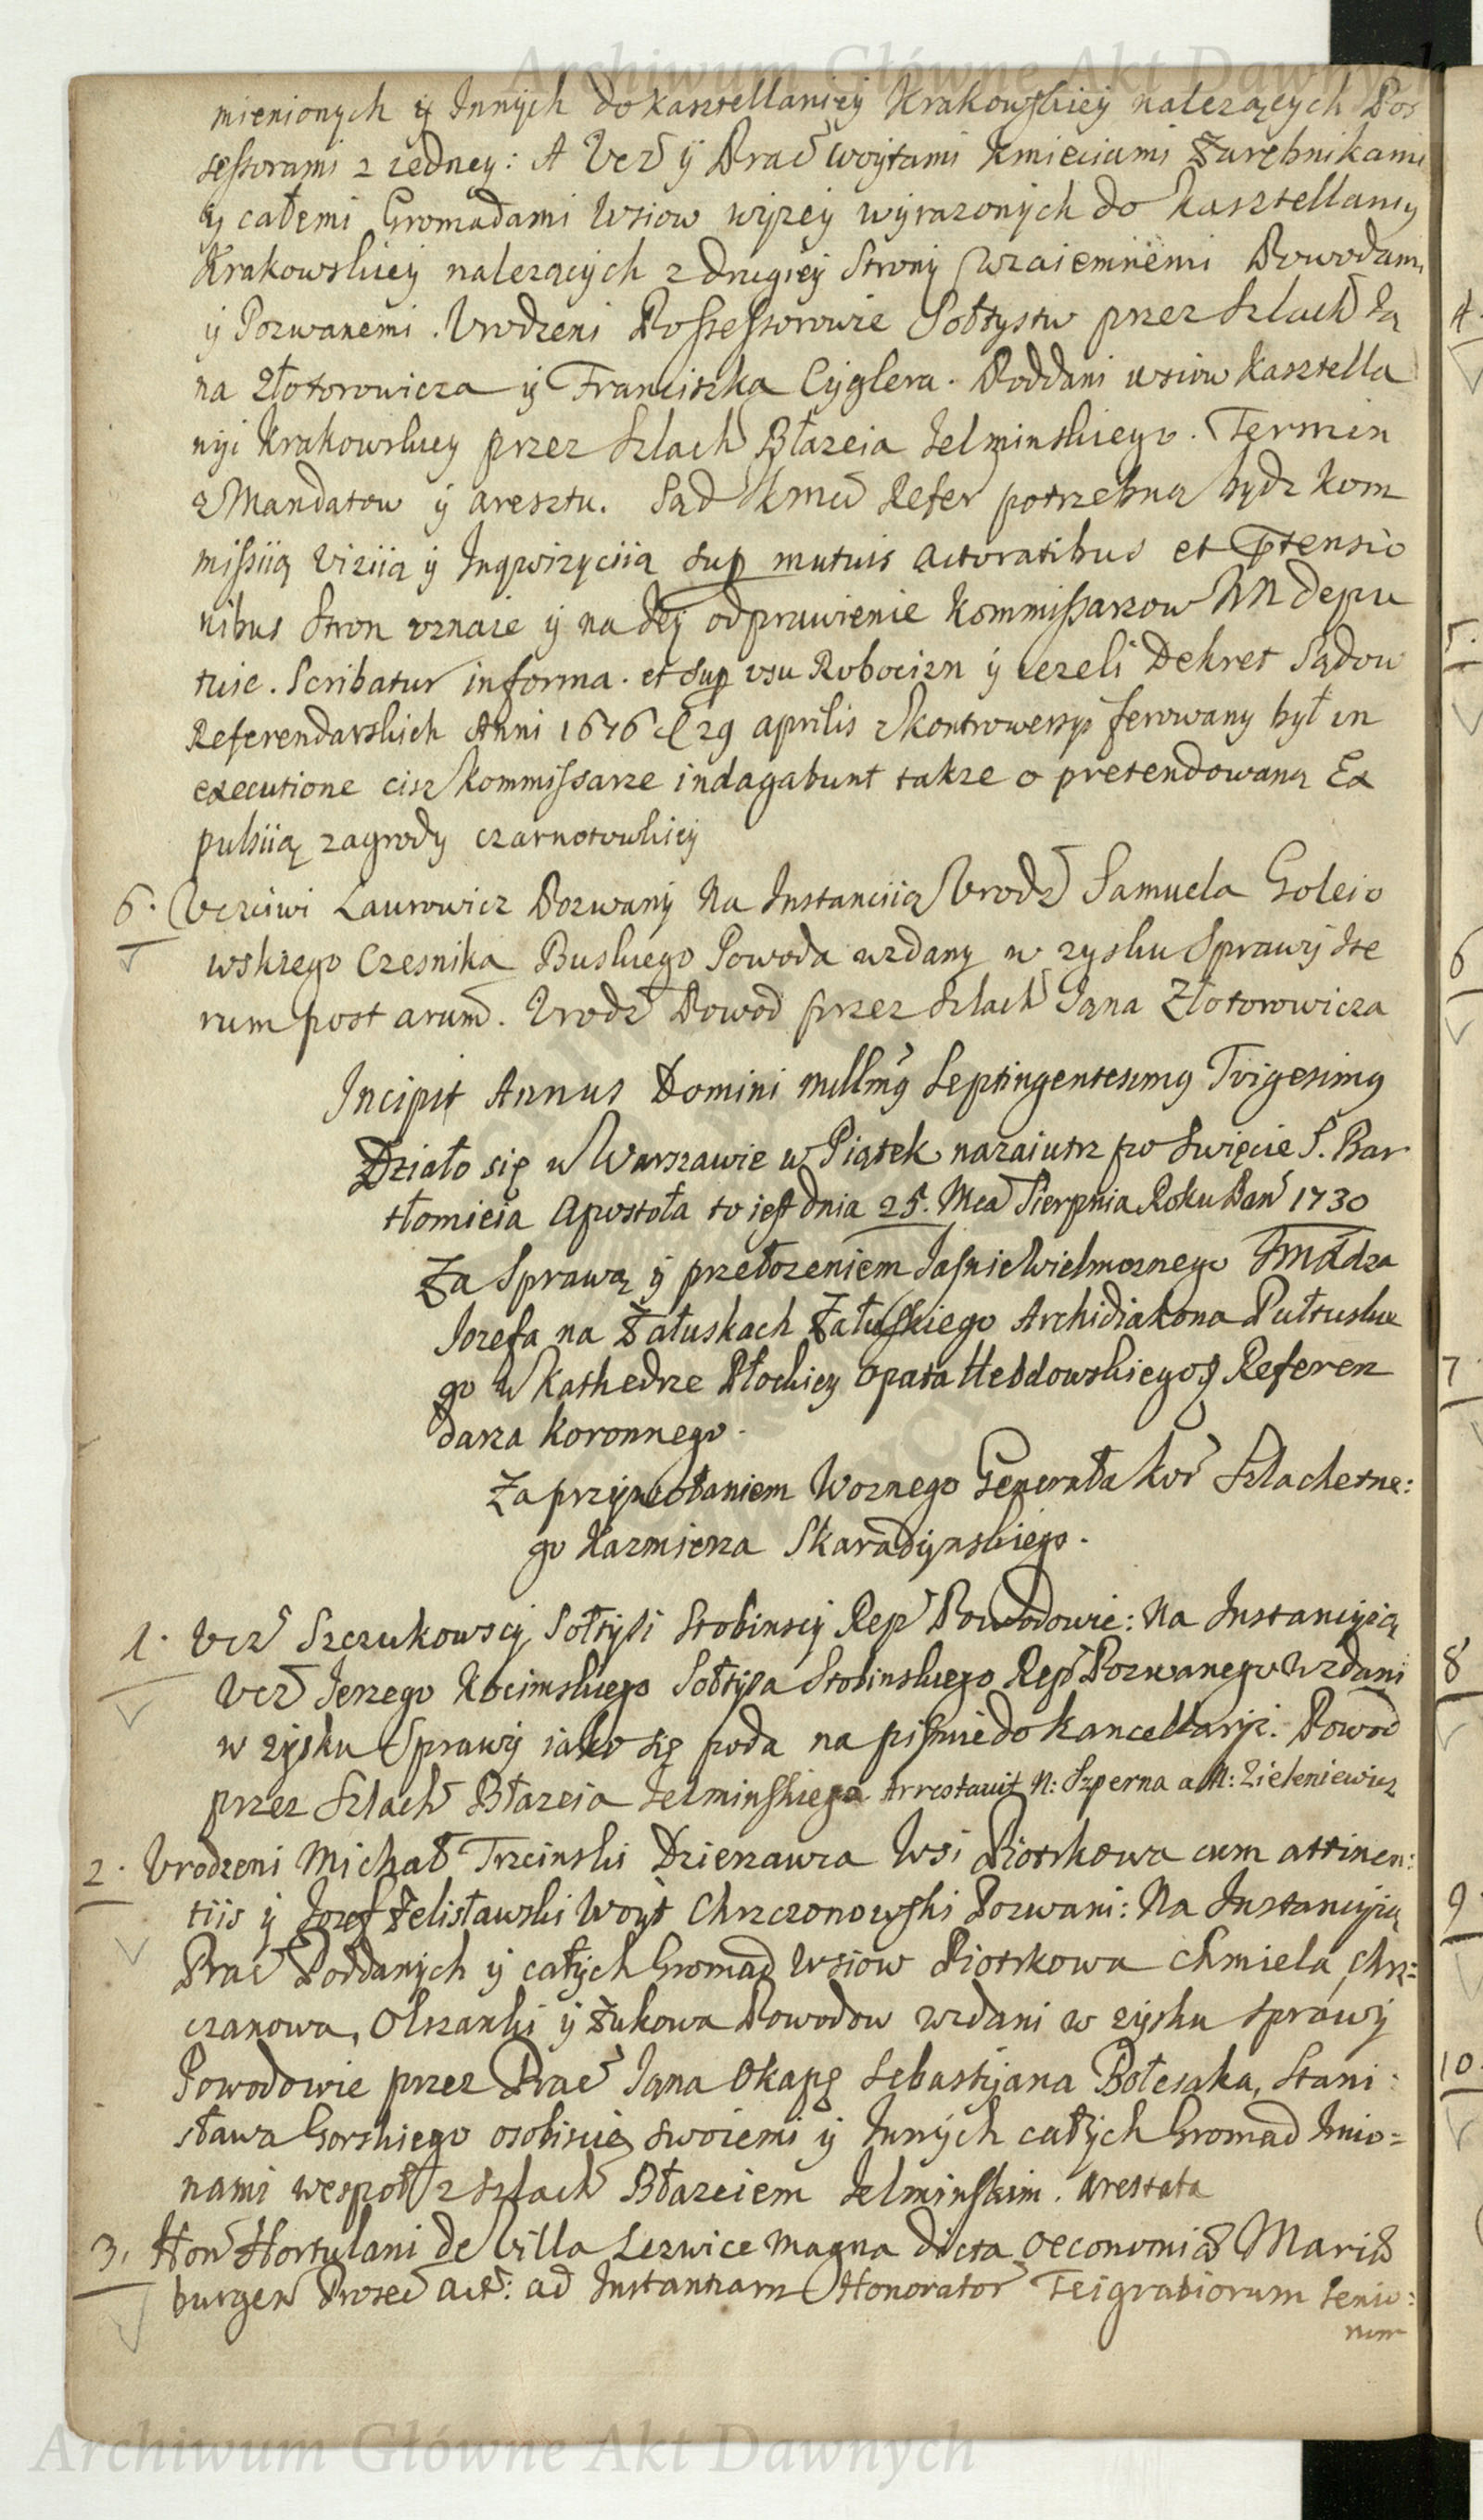 Archiwum Główne Akt Dawnych
mienionych ÿ Innÿch do kasztellaniey Krakowskiey nalezących Pos
sessorami z iedney: A Ucz ÿ Prac woÿtami Kmieciami Zarębnikami
ÿ całemi Gromadami Wsiow wÿzey wÿrazonÿch do Kasztellaniy
Krakowskiey nalezącÿch z drugiey Stronÿ wzaiemnemi Powodami
ÿ Pozwanemi. Urodzeni Possessorowie Sołtystw przez Szlach Ia
na Złotorowicza ÿ Franciszka Cÿglera. Poddani wsiow Kasztella
nÿi Krakowskiey przez Szlach Błazeia Jelminskiego. Termin
z Mandatow ÿ aresztu. Sąd JKmci Refer potrzebną bÿdz kom
missiią Viziią ÿ Inqwizyciią sup mutuis actoratibus et Ptensio
nibus Stron uznaie ÿ na Iey odprawienie Kommissarzow NN depu
tuie. Scribatur in forma. et sup usu Robocizn ÿ iezeli Dekret Sądow
Referendarskich Anni 1676 29 aprilis z kontrowersyi ferowany był in
executione cisz kommissarze indagabunt takze o pretendowaną Ex
pulsiią zagrody czarnotowskiey
6. Uczciwi Laurowicz Pozwanÿ Na Instanciią Urodz Samuela Goleio
wskiego Czesnika Buskiego Powoda wzdany w zysku Sprawÿ Ite
rum post arum. Urodz Powod przez Szlach Iana Złotorowicza
Incipit Annus Domini Millmg Septingentesimg Trigesimg
Działo się w Warszawie w Piątek nazaiutrz po Swięcie S. Bar
tłomieia Apostoła to iest dnia 25. Mca Sierpnia Roku Pan 1730
Za Sprawą ÿ przełozeniem Jasnie Wielmoznego Imci dza
Iozefa na Załuskach Załuskiego Archidiakona Pułtuskie
go w Kathedrze Płockiey Opata Hebdowskiego ÿ Referen
darza Koronnego.
Za przÿwołaniem Woznego Generała Kor Szlachetne:
go Kazmierza Skaradÿnskiego.
1. Ucz Szczukowscÿ Sołtÿsi Stobinscÿ Rep Powodowie: Na Instancÿią
Ucz Jerzego Kocimskiego Sołtÿsa Stobinskiego Rep Pozwanego wzdani
w zÿsku Sprawÿ iako się poda na pismie do kancellarÿi. Powod
przez Szlach Błazeia Jelminskiego. Arrestavit N: Szperna a N: Zieleniewicz
2. Urodzeni Michał Trzcinski Dzierzawca Wsi Piotrkowa cum attinen:
tiis ÿ Iozef Zelisławski Woÿt Chrzczonowski Pozwani: Na Instancÿią
Prac Poddanych ÿ całÿch Gromad Wsiow Piotrkowa Chmiela, Chrz=
czanowa, Olszanki ÿ Zukowa Powodow wzdani w zÿsku sprawÿ
Powodowie przez Prac Iana Okapę Sebastÿana Boleszka, Stani:
sława Gorskiego osobiscie swoiemi ÿ Innÿch całÿch Gromad Imio=
nami wespoł z Szlach Błazeiem Jelminskim. Arestata
3. Hon Hortulani de Villa Lezwice magna dicta Oeconomiæ Mariæ
burgen Prosec act: ad Instantiam Honorator Teigrabiorum Senio:
num
4.
5.
6
7
8
9
10.
Archiwum Główne Akt Dawnych